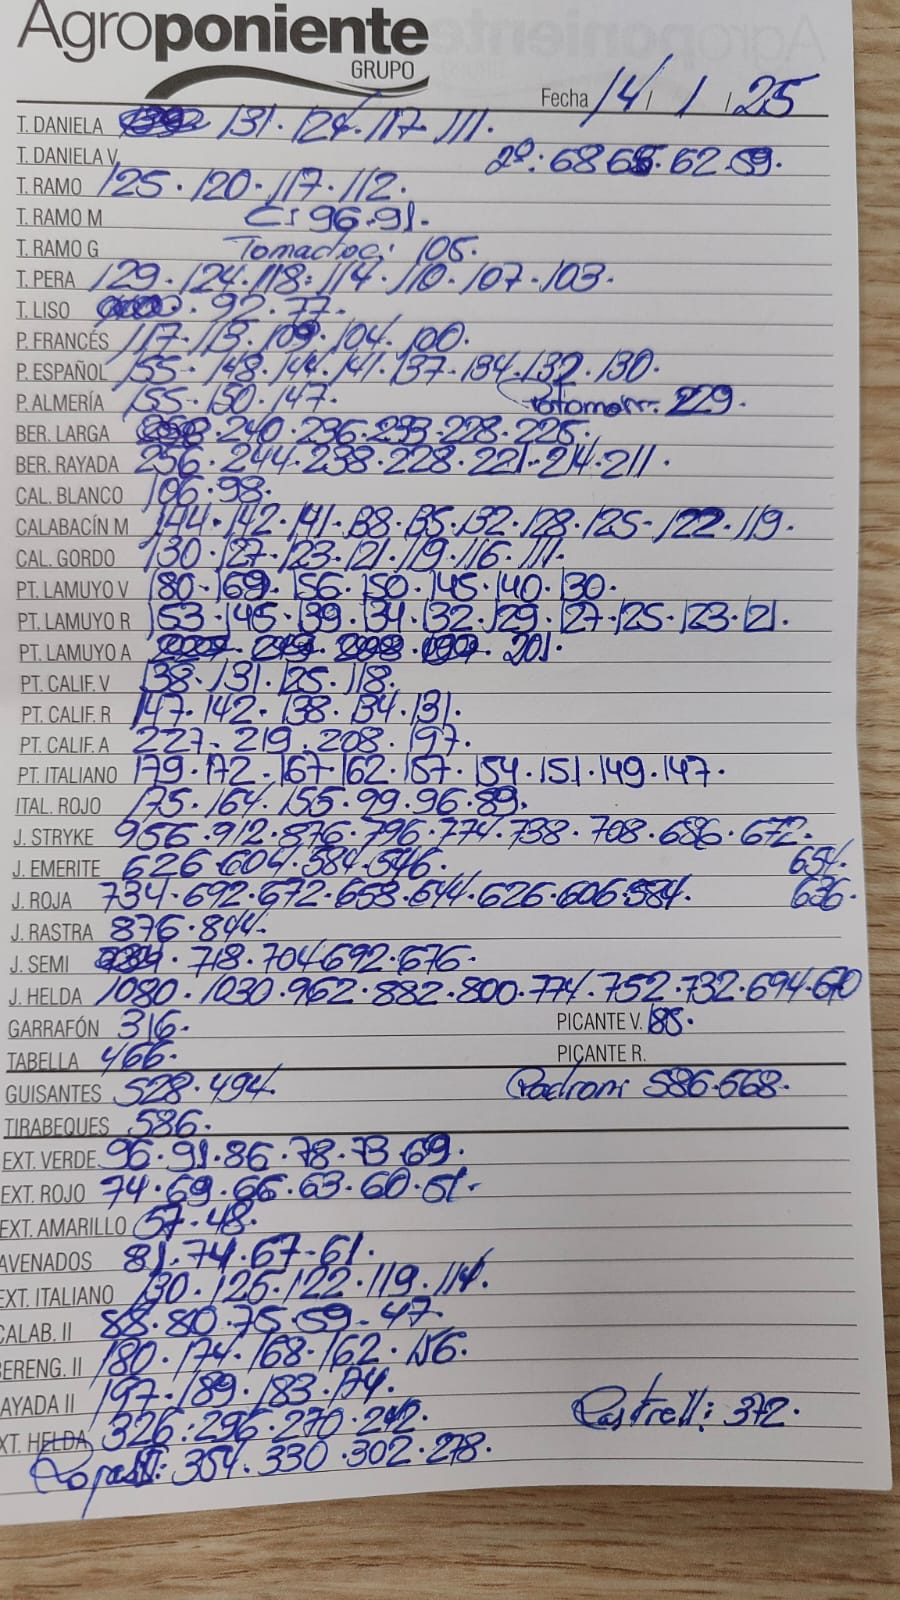 Agroponiente
GRUPO
Fecha 14 / 1 / 25
T. DANIELA 131. 124. 117. 111.
T. DANIELA V. 2º: 68 65. 62. 59.
T. RAMO 125. 120. 117. 112.
T. RAMO M C: 96. 91.
T. RAMO G 105.
T. PERA 129. 124. 118. 114. 110. 107. 103.
T. LISO 92. 77.
P. FRANCÉS 117. 113. 109. 104. 100.
P. ESPAÑOL 155. 148. 144. 141. 137. 134. 132. 130.
P. ALMERÍA 155. 150. 147. 229.
BER. LARGA 240. 236. 233. 228. 225.
BER. RAYADA 256. 244. 238. 228. 221. 214. 211.
CAL. BLANCO 106. 98.
CALABACÍN M 144. 142. 141. 138. 135. 132. 128. 125. 122. 119.
CAL. GORDO 130. 127. 123. 121. 119. 116. 111.
PT. LAMUYO V 180. 169. 156. 150. 145. 140. 130.
PT. LAMUYO R 153. 145. 139. 134. 132. 129. 127. 125. 123. 121.
PT. LAMUYO A 201.
PT. CALIF. V 138. 131. 125. 118.
PT. CALIF. R 147. 142. 138. 134. 131.
PT. CALIF. A 227. 219. 208. 197.
PT. ITALIANO 179. 172. 167. 162. 157. 154. 151. 149. 147.
ITAL. ROJO 175. 164. 155. 99. 96. 89.
J. STRYKE 956. 912. 876. 796. 774. 738. 708. 686. 672.
J. EMERITE 626. 604. 584. 546. 654.
J. ROJA 734. 692. 672. 658. 644. 626. 606. 584. 636.
J. RASTRA 876. 844.
J. SEMI 718. 704. 692. 676.
J. HELDA 1080. 1030. 962. 882. 800. 774. 752. 732. 694. 670
GARRAFÓN 316. PICANTE V. 185.
TABELLA 466. PICANTE R.
GUISANTES 528. 494. Padron: 586. 568.
TIRABEQUES 586.
EXT. VERDE 96. 91. 86. 78. 73. 69.
EXT. ROJO 74. 69. 66. 63. 60. 51.
EXT. AMARILLO 57. 48.
AVENADOS 81. 74. 67. 61.
EXT. ITALIANO 130. 126. 122. 119. 114.
CALAB. II 88. 80. 75. 59. 47.
BERENG. II 180. 174. 168. 162. 156.
AYADA II 197. 189. 183. 174.
XT. HELDA 326. 296. 270. 242. Rastrell: 372.
354. 330. 302. 278.